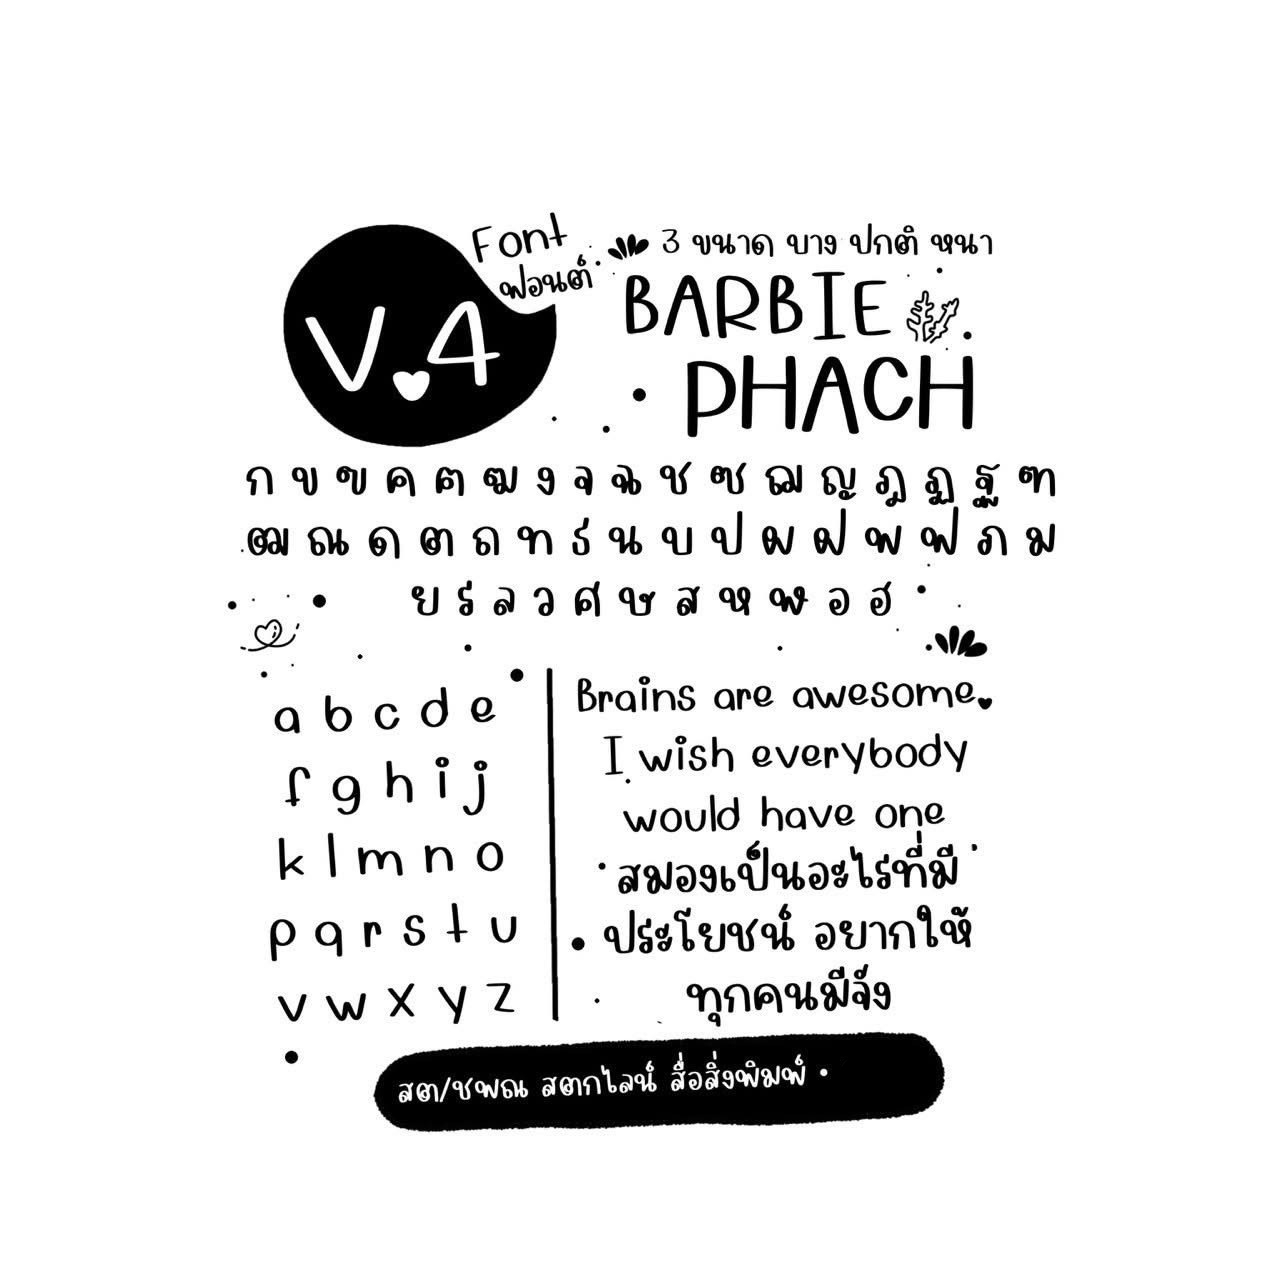 V.4
Font
ฟอนต์
3 ขนาด บาง ปกติ หนา
BARBIE
PHACH
ก ข ฃ ค ฅ ฆ ง จ ฉ ช ซ ฌ ญ ฎ ฏ ฐ ฑ
ฒ ณ ด ต ถ ท ธ น บ ป ผ ฝ พ ฟ ภ ม
ย ร ล ว ศ ษ ส ห ฬ อ ฮ
a b c d e
f g h i j
k l m n o
p q r s t u
v w x y z
Brains are awesome.
I wish everybody
would have one
สมองเป็นอะไรที่มี
ประโยชน์ อยากให้
ทุกคนมีจัง
สต/ชพณ สตกไลน์ สื่อสิ่งพิมพ์